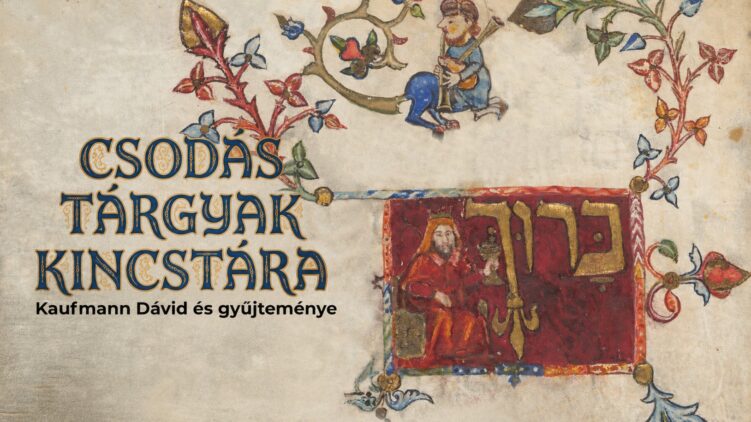 CSODÁS
TÁRGYAK
KINCSTÁRA
Kaufmann Dávid és gyűjteménye
בָּרוּךְ